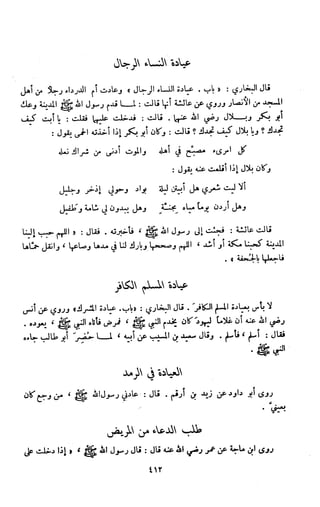 عيادة النساء الرجال
قال البخاري : « باب . عيادة النساء الرجال » وعادت أم الدرداء رجلا من أهل
المسجد من الأنصار وروي عن عائشة أنها قالت : لما قدم رسول الله ﷺ المدينة وعك
أبو بكر وبلال رضي الله عنها . قالت : فدخلت عليها فقلت : يا أبت كيف
تجدك ؟ ويا بلال كيف تجدك ؟ قالت : وكان أبو بكر إذا أخذته الحمى يقول :
كل امرىء مصبح في أهله والموت أدنى من شراك نعله
وكان بلال إذا أقلعت عنه يقول :
ألا ليت شعري هل أبيتن ليلة بواد وحولي إذخر وجليل
وهل أردن يوما مياه مجنة وهل يبدون لي شامة وطفيل
قالت عائشة : فجئت إلى رسول الله ﷺ ، فأخبرته . فقال : « اللهم حبب إلينا
المدينة كحبنا مكة أو أشد ، اللهم وصححها وبارك لنا في مدها وصاعها ، وانقل حماها
فاجعلها بالجحفة » .
عيادة المسلم الكافر
لا بأس بعيادة المسلم الكافر . قال البخاري : «باب . عيادة المشرك» وروي عن أنس
رضي الله عنه أن غلاما ليهود كان يخدم النبي ﷺ ، فمرض فأتاه النبي ﷺ ، يعوده .
فقال : أسلم ، فأسلم . وقال سعيد بن المسيب عن أبيه ، لما حضر أبو طالب جاءه
النبي ﷺ .
العيادة في الرمد
روى أبو داود عن زيد بن أرقم . قال : عادني رسول الله ﷺ ، من وجع كان
بعيني .
طلب الدعاء من المريض
روى ابن ماجة عن عمر رضي الله عنه قال : قال رسول الله ﷺ « إذا دخلت على
٤١٢